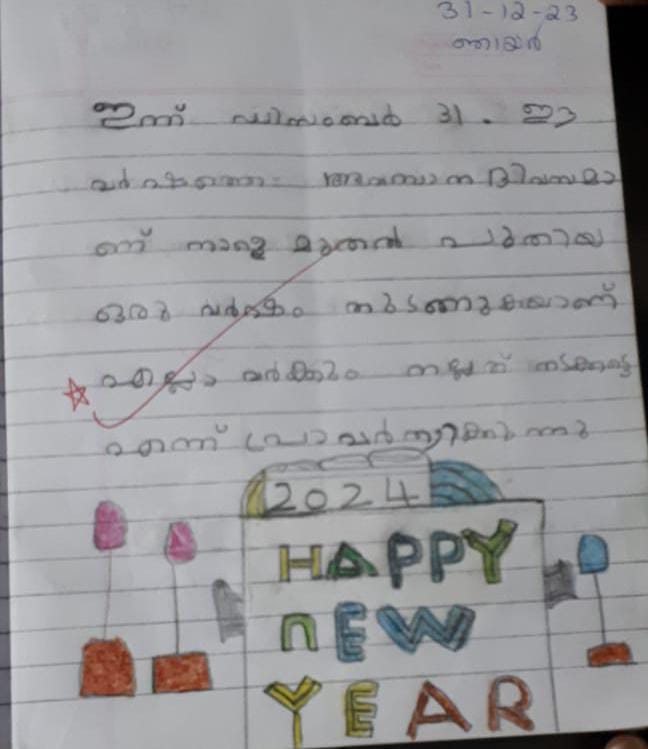 31-12-23
ഞായർ
ഇന്ന് ഡിസംബർ 31. ഈ
വർഷത്തെ അവസാന ദിവസമാ
ണ് നാളെ മുതൽ പുതിയ
ഒരു വർഷം തുടങ്ങുകയാണ്
എല്ലാ വർഷവും നല്ലത് നടക്കട്ടെ
എന്ന് പ്രാർത്ഥിക്കുന്നു
2024
HAPPY
nEW
YEAR